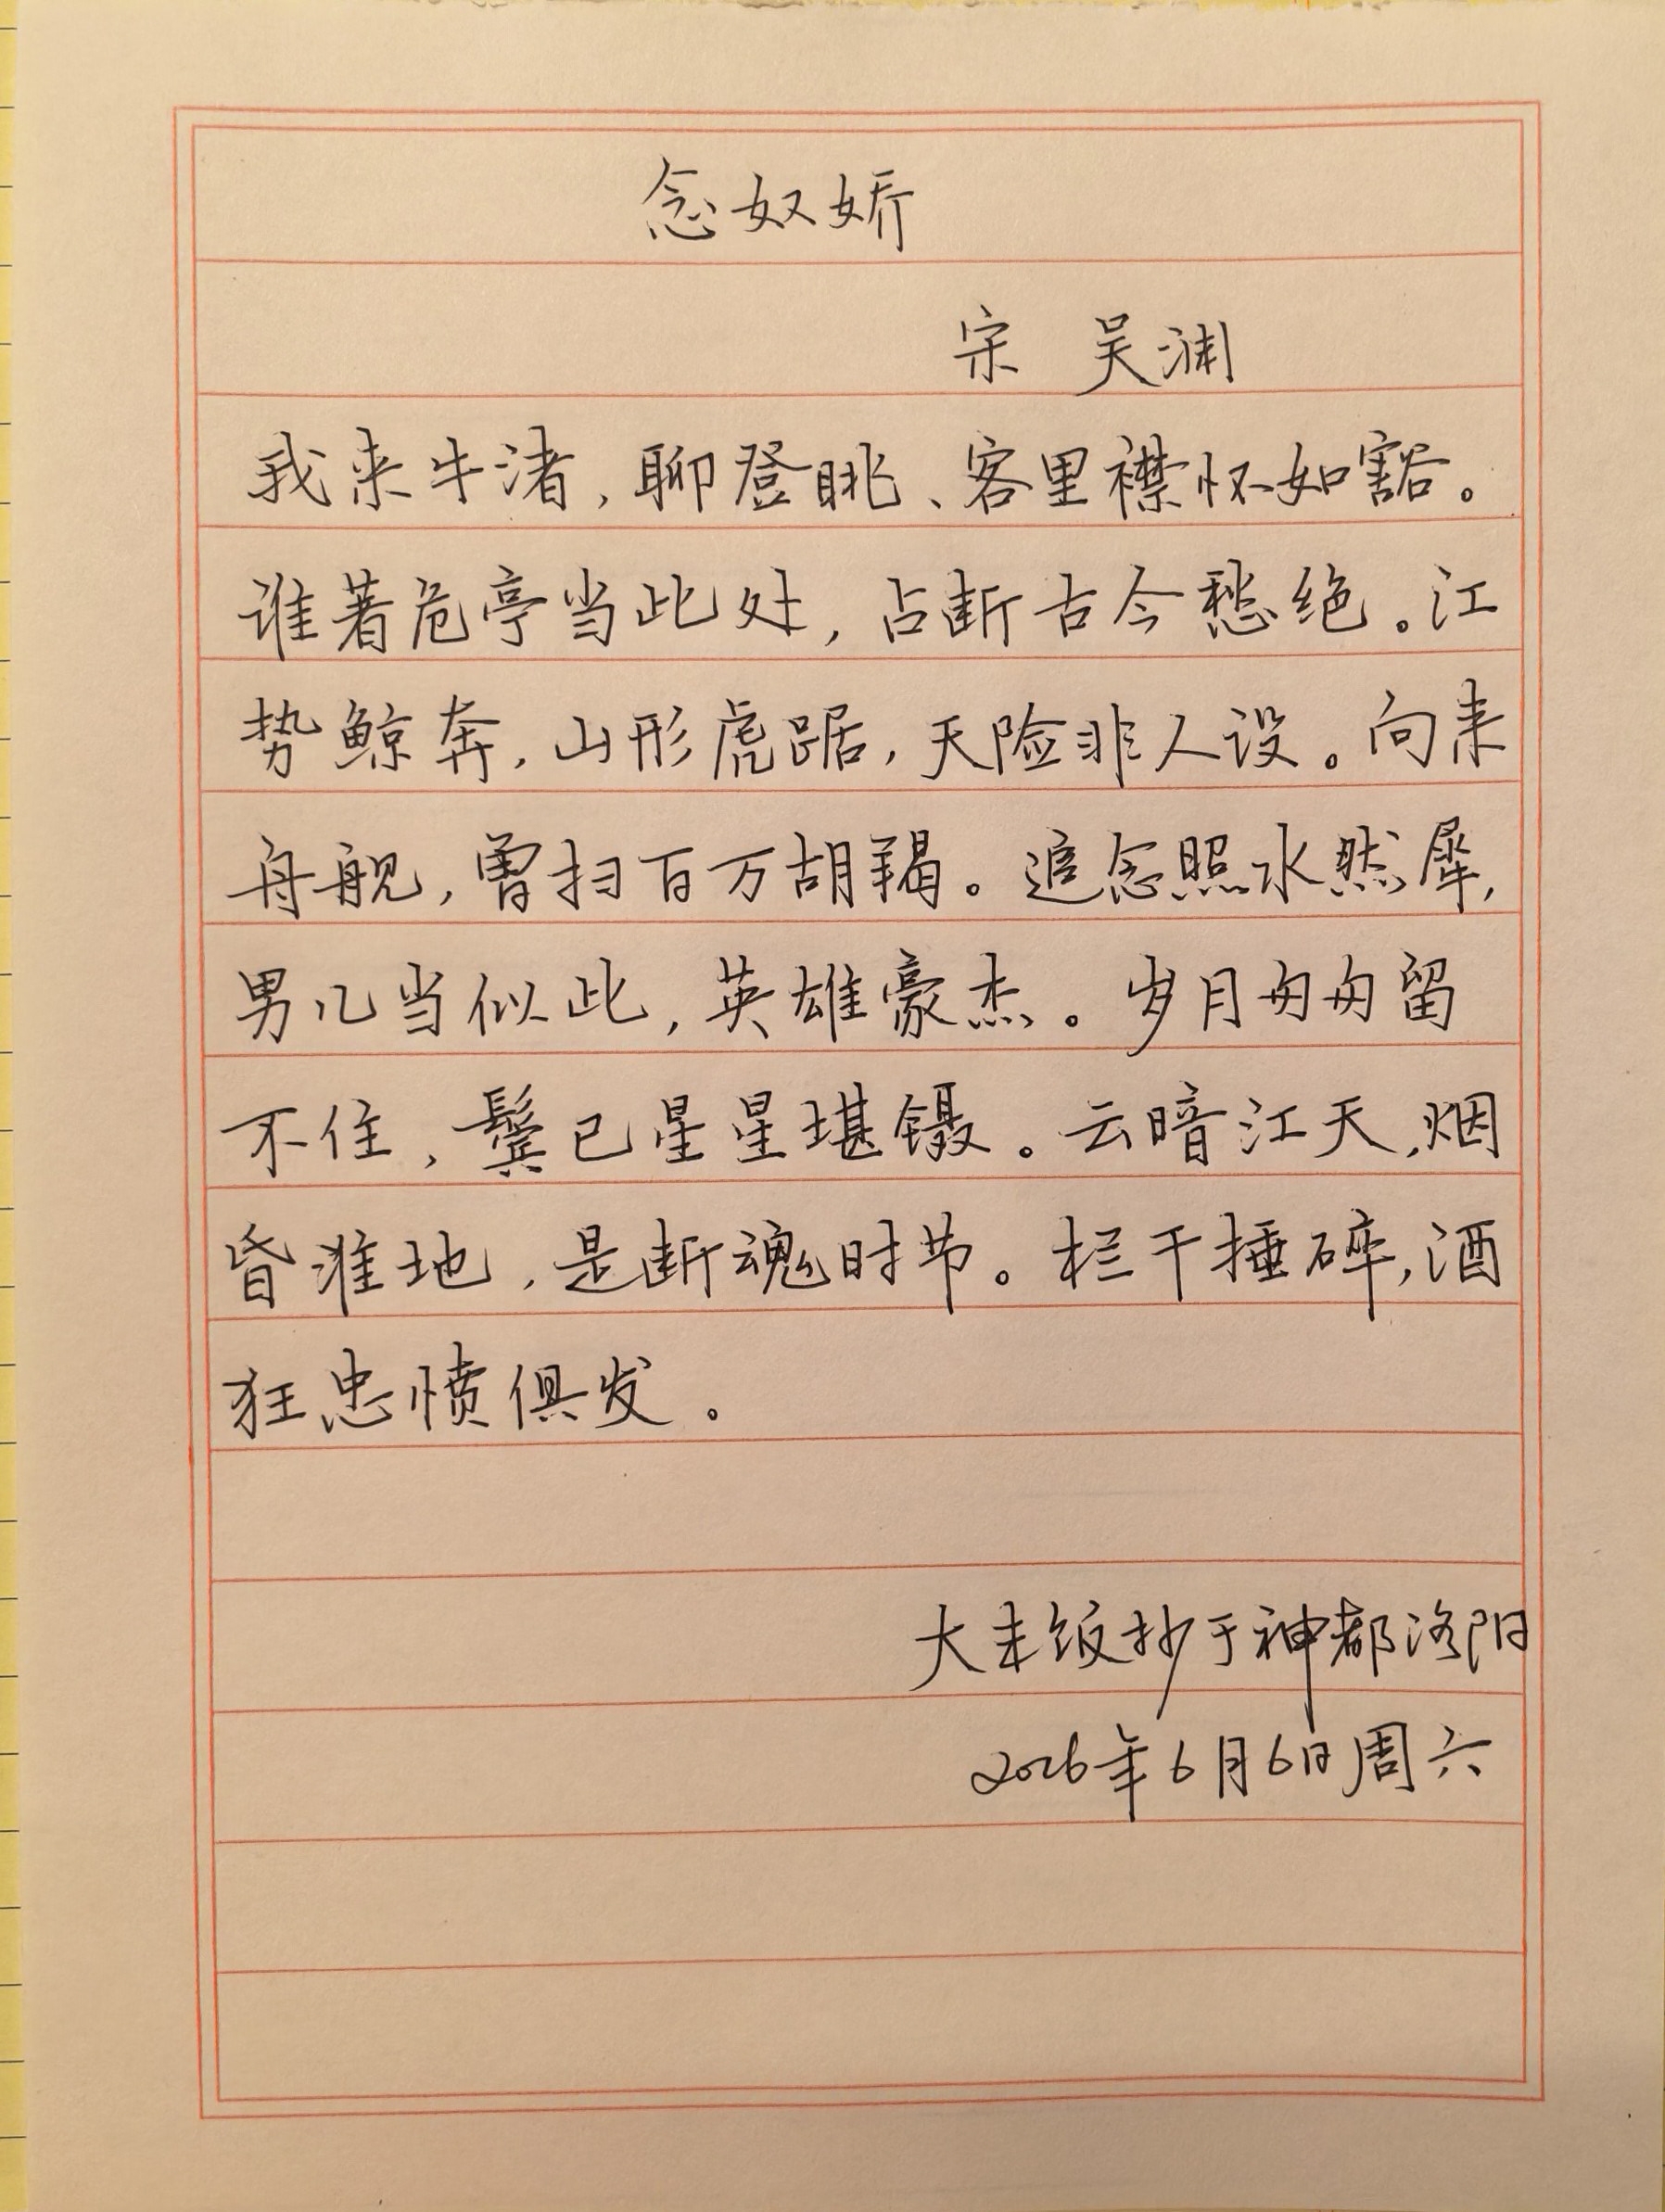 念奴娇
宋 吴渊
我来牛渚,聊登眺、客里襟怀如豁。
谁著危亭当此处,占断古今愁绝。江
势鲸奔,山形虎踞,天险非人设。向来
舟舰,曾扫百万胡羯。追念照水然犀,
男儿当似此,英雄豪杰。岁月匆匆留
不住,鬓已星星堪镊。云暗江天,烟
昏淮地,是断魂时节。栏干捶碎,酒
狂忠愤俱发。
大米饭抄于神都洛阳
2026年6月6日周六